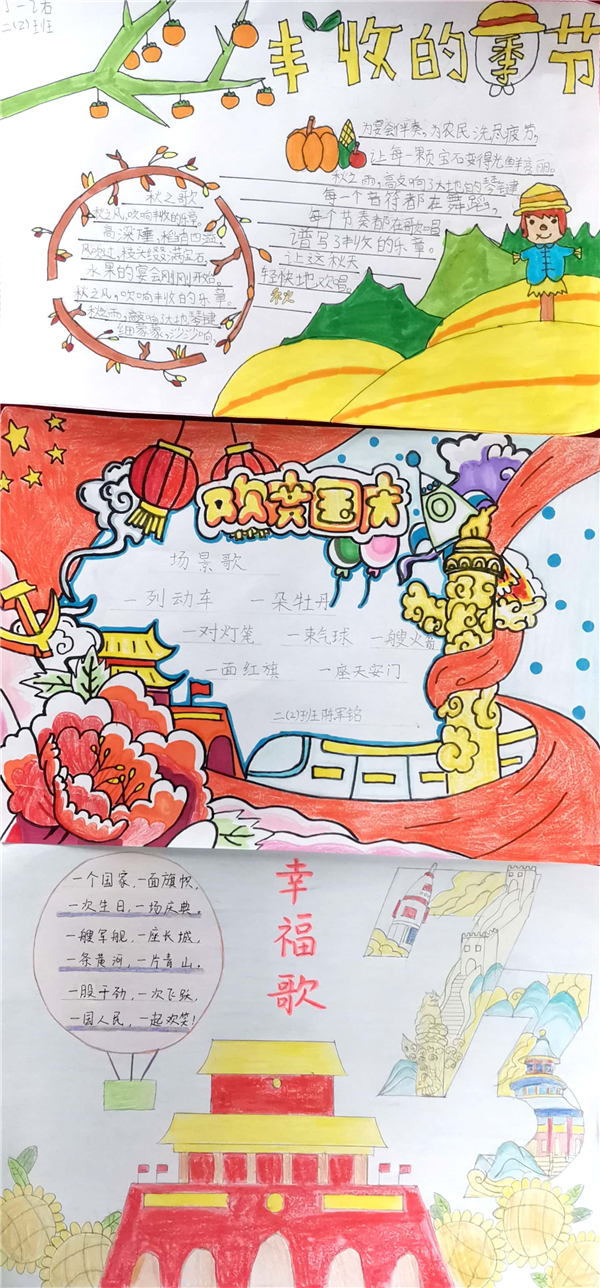 二(2)班
丰收的季节
为宴会伴奏，为农民洗尽疲劳，
让每一颗宝石变得光鲜亮丽。
秋之雨，敲响了大地的琴键
每一个音符都在舞蹈，
每个节奏都在歌唱
谱写了丰收的乐章。
让这秋天
轻快地欢唱。
秋之歌
秋之风，吹响丰收的乐章
水果的宴会刚刚开始。
秋之风，吹响丰收的乐章。
秋之雨，敲响了大地琴键
欢度国庆
场景歌
一列动车 一朵牡丹
一对灯笼 一束气球 一艘火箭
一面红旗 一座天安门
二(2)班陈军铭
幸福歌
一个国家，一面旗帜，
一次生日，一场庆典。
一艘军舰，一座长城，
一条黄河，一片青山。
一股干劲，一次飞跃，
一国人民，一起欢笑！
75